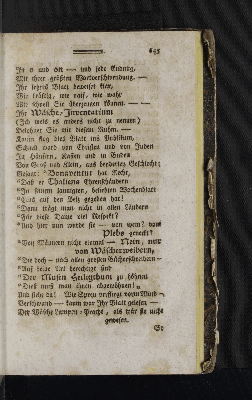 645
Ihr s und st — und jede Endung,
Mit ihrer größten Wortverschwendung. —
Ihr letztes Blatt beweiset hier,
Wie bräsig, wie naif, wie wahr
Wie schnell Sie überzeugen können. — —
Ihr Wäsche-Inventarium
(Ich weis es anders nicht zu nennen)
Belohnet Sie mit diesem Ruhm. —
Kaum flog dies Blatt ins Publikum,
Schrieb ward von Christen und von Juden
In Häusern, Kasten und in Buden
Von Groß und Klein, aus beiderlei Geschlecht;
Gesagt: "Bonaventur hat Recht,
"Daß er Thaliens Ehrenschändern
"In seinem launigten, beliebten Wochenblatt
"Eins auf den Pelz gegeben hat!
"Dann trägt man nicht in allen Ländern
"Für diese Dame viel Respekt?
"Und hier nun wurde sie — von wem? vom
Plebs geneckt!
"Von Männern nicht einmal — Nein, nur
von Wäscherweibern,
"Die doch — nach allen großen Bücherschreibern —
"Auf keine Art berechtigt sind
"Der Musen Heiligthum zu höhnen
"Dieß muß man ihnen abgewöhnen!"
Und siehe da! Wie Spreu verfliegt vorm Wind
Verschwand — kaum war Ihr Blatt gelesen —
Der Wäsche Lumpen-Pracht, als wär sie nicht
gewesen.
So